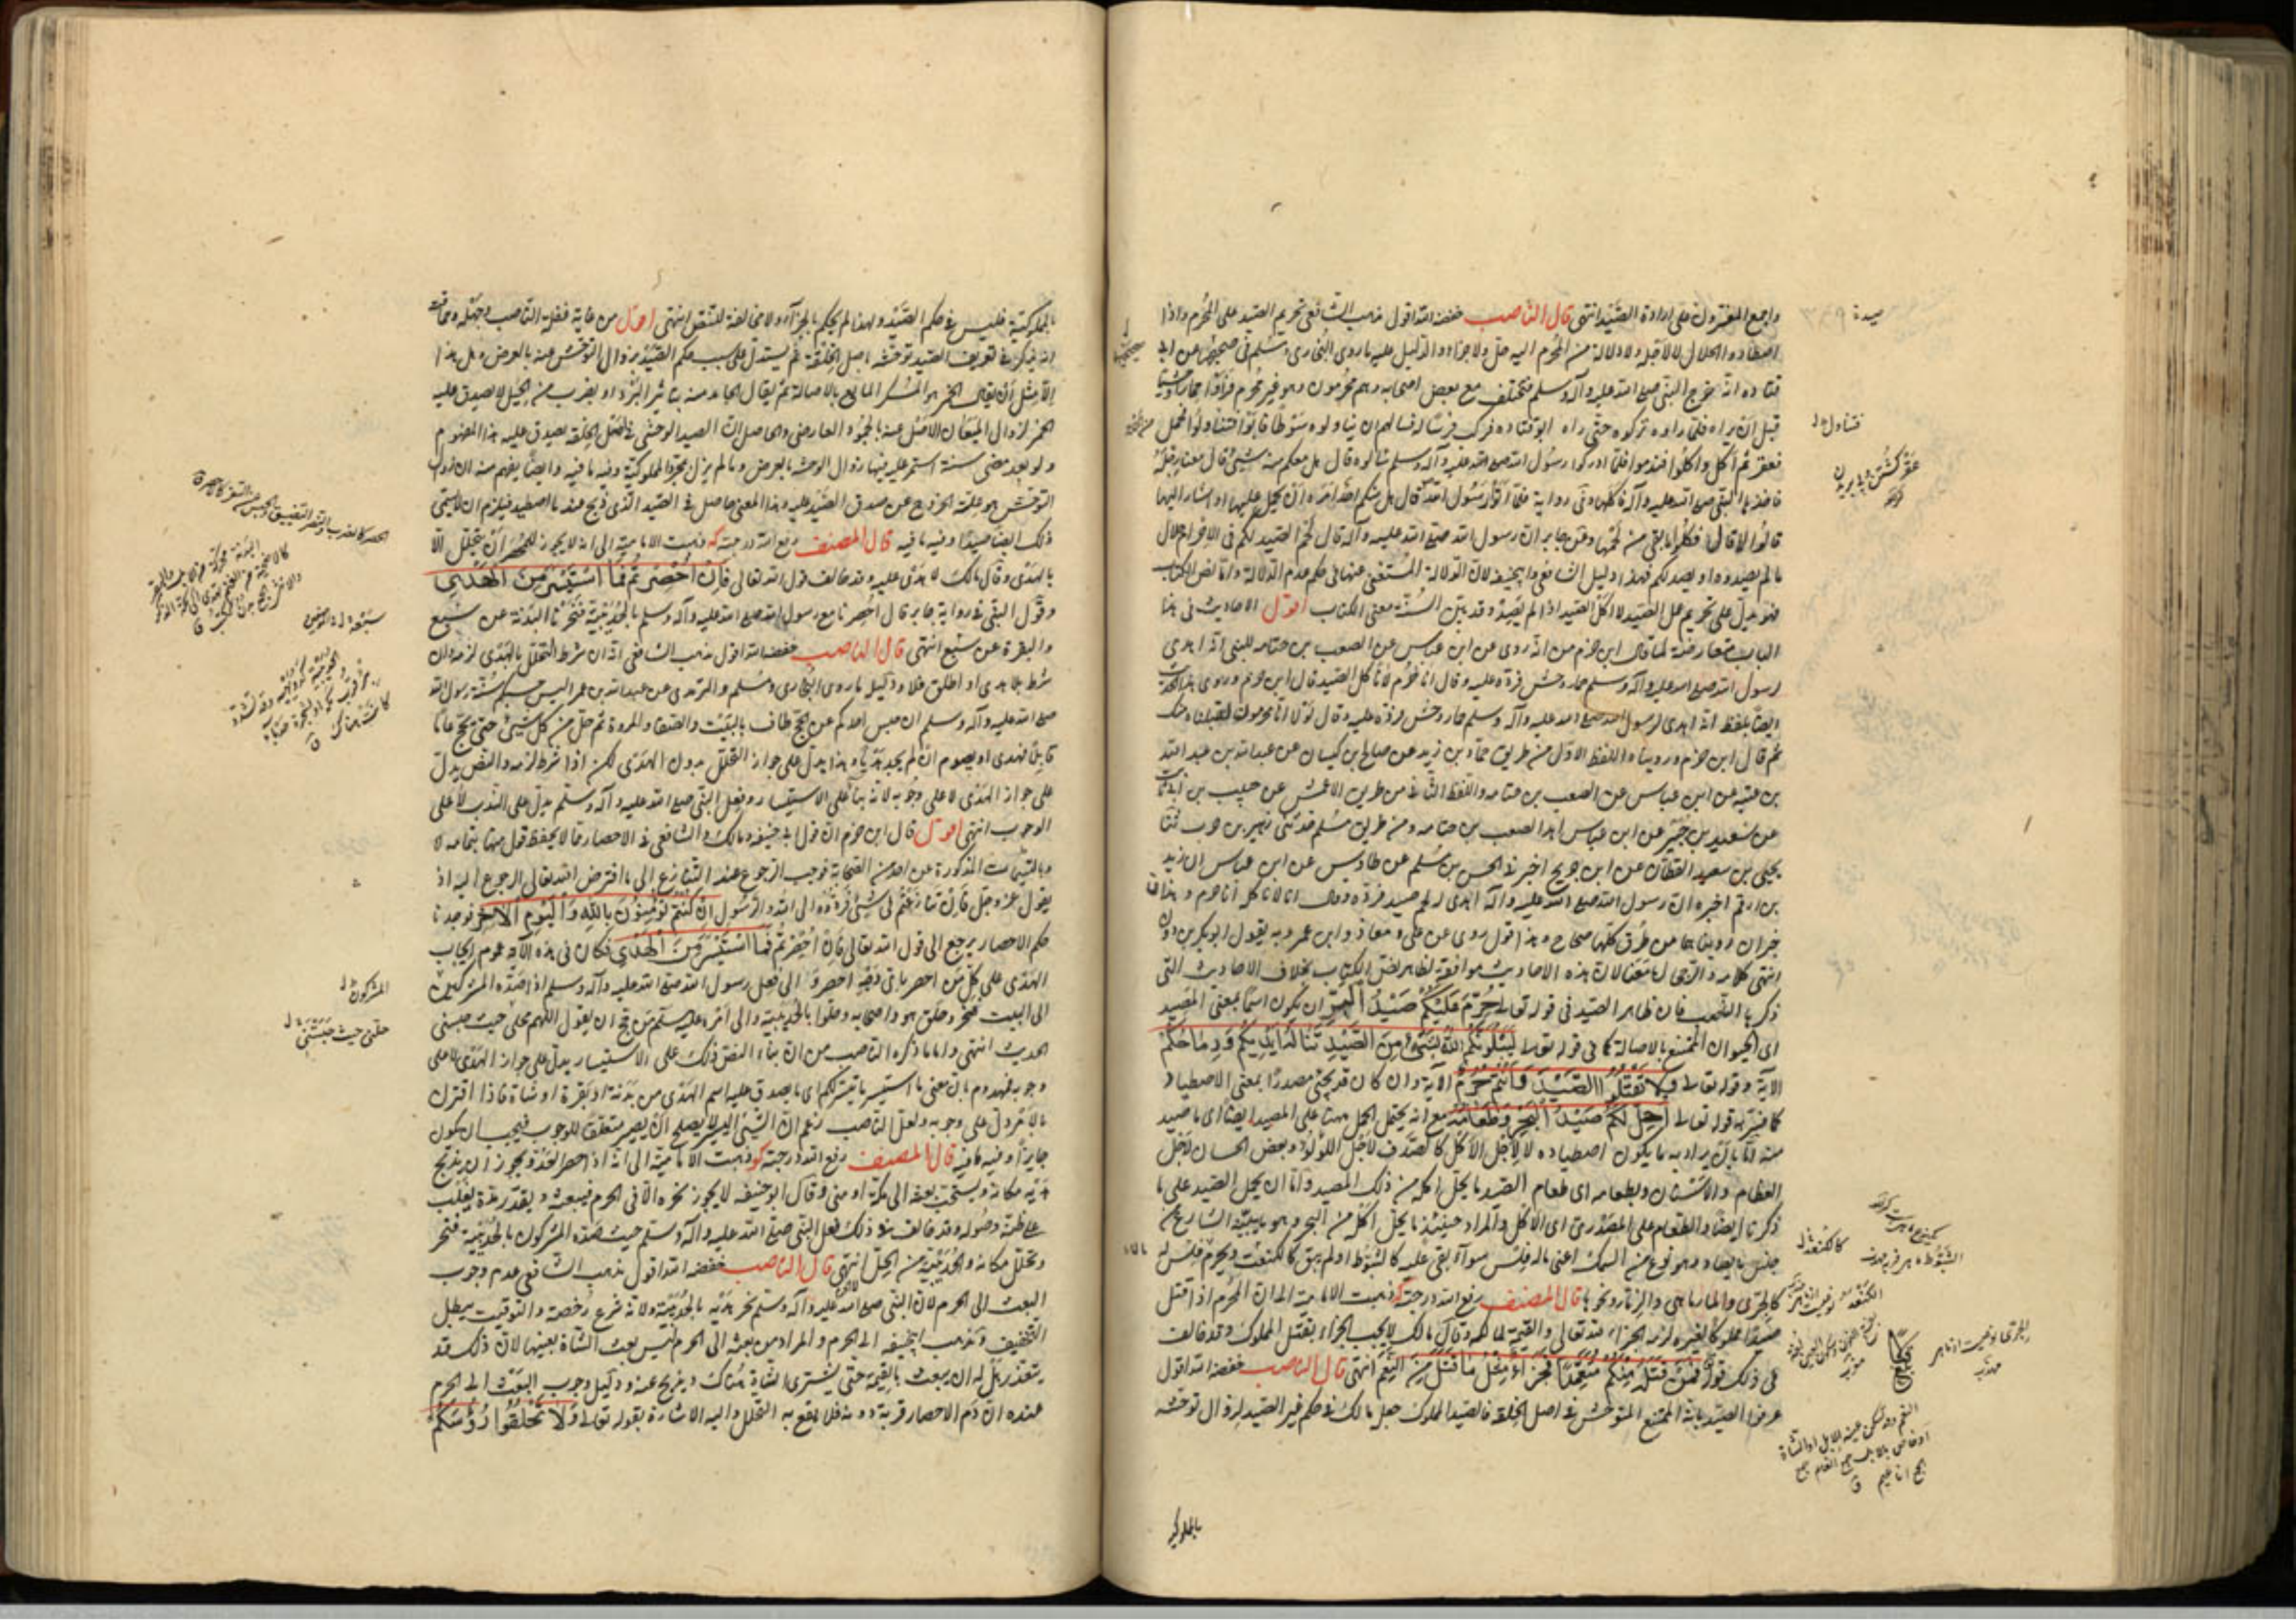 واجمع المفسرون على ارادة الصيد انتهى قال الناصب خفضه الله اقول مذهب الشافعي تحريم الصيد على المحرم واذا
اصطاده الحلال لا لاجله ولا دلالة من المحرم اليه حل ولا جزاء والدليل عليه ما روى البخاري ومسلم في صحيحهما عن ابي
قتادة انه خرج النبي صلى الله عليه وآله وسلم فتخلف مع بعض اصحابه وهم محرمون وهو غير محرم فرأوا حمارا وحشيا
قبل ان يراه فلما راوه تركوه حتى راه ابو قتاده فركب فرسا له فسالهم ان يناولوه سوطا فابوا فتناوله فحمل
فعقر ثم اكل واكلوا فندموا فلما ادركوا رسول الله صلى الله عليه وآله وسلم سألوه قال هل معكم منه شيئ قال معنا رجله
فاخذها النبي صلى الله عليه وآله فاكلها وفي رواية فلما اتوا رسول الله قال هل منكم احد امره ان يحمل عليها او اشار اليها
قالوا لا قال فكلوا ما بقي من لحمها وعن جابر ان رسول الله صلى الله عليه وآله قال لحم الصيد لكم في الاحرام حلال
ما لم تصيدوه او يصد لكم فهذا دليل الشافعي وابي حنيفة لان الدلالة المستغنى عنها في حكم عدم الدلالة واما نص الكتاب
فهو يدل على تحريم حل الصيد لا اكل الصيد اذا لم يصده وقد بين السنة معنى الكتاب اقول الاحاديث في هذا
الباب متعارضة لما قال ابن حزم من انه روى عن ابن عباس عن الصعب بن جثامه للنبي انه اهدى
لرسول الله صلى الله عليه وآله وسلم حمار وحش فرده عليه وقال انا حرم لا نأكل الصيد قال ابن حزم وروى هذا الحديث
ايضا بلفظ انه اهدى لرسول الله صلى الله عليه وآله وسلم حمار وحش فرده عليه وقال لولا انا محرمون لقبلناه منك
ثم قال ابن حزم وروينا واللفظ الاول من طريق حماد بن زيد عن صالح بن كيسان عن عبدالله بن عبد الله
بن عتبه عن ابن عباس عن الصعب بن جثامه واللفظ الثاني من طريق الاعمش عن حبيب بن ابي ثابت
عن سعيد بن جبير عن ابن عباس اهدا الصعب بن جثامه ومن طريق مسلم حدثني زهير بن حرب ثنا
يحيى بن سعيد القطان عن ابن جريج اخبرني الحسن بن مسلم عن طاوس عن ابن عباس ان زيد
بن ارقم اخبره ان رسول الله صلى الله عليه وآله اهدى له لحم صيد فرده وقال انا لا ناكله انا حرم وهذان
خبران رويناهما من طرق كلها صحاح وهذا قول روى عن علي ومعاذ وابن عمر وبه يقول ابو بكر بن داود
انتهى كلامه والترجيح معنا لان هذه الاحاديث موافقة لظاهر نص الكتاب بخلاف الاحاديث التي
ذكرها الناصب فان ظاهر الصيد في قوله تعالى حُرِّمَ عَلَيْكُمْ صَيْدُ الْبَرِّ ان يكون اسما بمعنى المصيد
اي الحيوان الممتنع بالاصالة كما في قوله تعالى لَيَبْلُوَنَّكُمُ اللهُ بِشَيْءٍ مِنَ الصَّيْدِ تَنَالُهُ أَيْدِيكُمْ وَرِمَاحُكُمْ
الآية وقوله تعالى لَا تَقْتُلُوا الصَّيْدَ وَأَنْتُمْ حُرُمٌ الآية وان كان قد يجئ مصدرا بمعنى الاصطياد
كما فسر به قوله تعالى أُحِلَّ لَكُمْ صَيْدُ الْبَحْرِ وَطَعَامُهُ مع انه يحتمل الحمل ههنا على المصيد ايضا اي ما صيد
منه اما بان يراد به ما يكون اصطياده لا لاجل الاكل كالصدف لاجل اللؤلؤ وبعض الحيسان لاجل
العظام والاسنان وبطعامه اي طعام الصيد ما يحل اكله من ذلك المصيد واما ان يحمل الصيد على ما
ذكرنا ايضا والطعام على المصدري اي الاكل والمراد حينئذ ما يحل اكله من البحر وهو ما يبينه الشارع من
جنس ما يصاد وهو نوع من السمك اعني ماله فلس سواء بقي عليه كالشبوط او لم يبق كالكنعت ويحرم ما فلس له
كالجرى والمارماهي والزمار ونحوها قال المصنف رفع الله درجته كد ذهبت الامامية الى ان المحرم اذا قتل
صيدا مملوكا لغيره لزمه الجزاء لله تعالى والقيمة لمالكه وقال مالك لا يجب الجزاء بقتل المملوك وقد خالف
في ذلك قوله فَمَنْ قَتَلَهُ مِنْكُمْ مُتَعَمِّدًا فَجَزَاءٌ مِثْلُ مَا قَتَلَ مِنَ النَّعَمِ انتهى قال الناصب خفضه الله اقول
عرفوا الصيد بانه الممتنع المتوحش في اصل الخلقة فالصيد المملوك جعل مالك في حكم غير الصيد لزوال توحشه
بالمملوكية
بالمملوكية فليس في حكم الصيد ولهذا لم يحكم بالجزاء ولا مخالفة للنص انتهى اقول من غاية غفلة الناصب وجهله وحماقته
انه يذكر في تعريف الصيد توحشه باصل الخلقة ثم يستدل على سلب حكم الصيد بزوال التوحش عنه بالعرض وهل هذا
الا مثل ان يقال الخمر هو المسكر المايع بالاصالة ثم يقال الجامد منه بتاثير البرد او بضرب من الحيل لا يصدق عليه
الخمر لزوال الميعان الاصلي عنه بالجمود العارضي والحاصل ان الصيد الوحشي في اصل الخلقة يصدق عليه هذا المفهوم
ولو بعد مضي سنة استمر عليه فيها زوال الوحشه بالعرض وما لم يزل بمجرد المملوكية وفيه ما فيه وايضا يفهم منه ان زوال
التوحش هو علة الخروج عن صدق الصيد عليه وهذا المعنى حاصل في الصيد الذي ذبح عند ما اصطيد فيلزم ان لا يسمى
ذلك ايضا صيدا وفيه ما فيه قال المصنف رفع الله درجته كه ذهبت الامامية الى انه لا يجوز للمحصر ان يتحلل الا
بالهدى وقال مالك لا هدى عليه وقد خالف قول الله تعالى فَإِنْ أُحْصِرْتُمْ فَمَا اسْتَيْسَرَ مِنَ الْهَدْيِ
وقول النبي في رواية جابر قال احصرنا مع رسول الله صلى الله عليه وآله وسلم بالحديبية فنحرنا البدنة عن سبع
والبقرة عن سبع انتهى قال الناصب خفضه الله اقول مذهب الشافعي انه ان شرط التحلل بالهدى لزمه وان
شرط بلا هدى او اطلق فلا ودليله ما روى البخاري ومسلم والترمذي عن عبدالله بن عمر اليس حسبكم سنة رسول الله
صلى الله عليه وآله وسلم ان حبس احدكم عن الحج طاف بالبيت والصفا والمروة ثم حل من كل شيئ حتى يحج عاما
قابلا فيهدى او يصوم ان لم يجد هديا وهذا يدل على جواز التحلل بدون الهدى لكن اذا شرط لزمه والنص يدل
على جواز الهدى لا على وجوبه لانه بنا على الاستيسار وفعل النبي صلى الله عليه وآله وسلم يدل على الندب لا على
الوجوب انتهى اقول قال ابن حزم ان قول ابي حنيفة ومالك والشافعي في الاحصار مما لا يحفظ قول منها بتمامه لا
وبالتتمات المذكورة عن احد من الصحابة فوجب الرجوع عند التنازع الى ما افترض الله تعالى الرجوع اليه اذ
يقول عز وجل فَإِنْ تَنَازَعْتُمْ فِي شَيْءٍ فَرُدُّوهُ إِلَى اللهِ وَالرَّسُولِ إِنْ كُنْتُمْ تُؤْمِنُونَ بِاللهِ وَالْيَوْمِ الْآخِرِ فوجدنا
حكم الاحصار يرجع الى قول الله تعالى فَإِنْ أُحْصِرْتُمْ فَمَا اسْتَيْسَرَ مِنَ الْهَدْيِ فكان في هذه الآية عموم ايجاب
الهدى على كل من احصر باي وجه احصر والى فعل رسول الله صلى الله عليه وآله وسلم اذا صده المشركين
الى البيت فنحر وحلق هو واصحابه وحلوا بالحديبية والى امره عليه سلم من حج ان يقول اللهم محلي حيث حبسني
الحديث انتهى واما ما ذكره الناصب من ان بناء النص ذلك على الاستيسار يدل على جواز الهدى لا على
وجوبه فمهدوم بان معنى ما استيسر ما تيسر لكم اي ما يصدق عليه اسم الهدى من بدنة او بقرة او شاة فاذا اقترن
بالامر دل على وجوبه ولعل الناصب زعم ان الشيئ اليسير لا يصلح ان يصير متعلق للوجوب فيجب ان يكون
جايزا وفيه ما فيه قال المصنف رفع الله درجته كو ذهبت الامامية الى انه اذا احصر العدو يجوز ان يذبح
هديه مكانه ويستحب بعثه الى مكة او منى وقال ابو حنيفة لا يجوز نحره الا في الحرم فيبعثه ويقدر مدة يغلب
على ظنه وصوله وقد خالف في ذلك فعل النبي صلى الله عليه وآله وسلم حيث صده المشركون بالحديبية فنحر
وتحلل مكانه والحديبية من الحل انتهى قال الناصب خفضه الله اقول مذهب الشافعي عدم وجوب
البعث الى الحرم لان النبي صلى الله عليه وآله وسلم نحر هديه بالحديبية ولانه شرع رخصة والتوقيت يبطل
التخفيف ومذهب ابي حنيفة الى الحرم والمراد من بعثه الى الحرم ليس بعث الشاة بعينها لان ذلك قد
يتعذر بل له ان يبعث بالقيمة حتى يشترى الشاة هناك ويذبح عنه ودليل وجوب البعث الى الحرم
عنده ان دم الاحصار قربة دونه فلا يقع به التحلل واليه الاشارة بقوله تعالى وَلَا تَحْلِقُوا رُءُوسَكُمْ